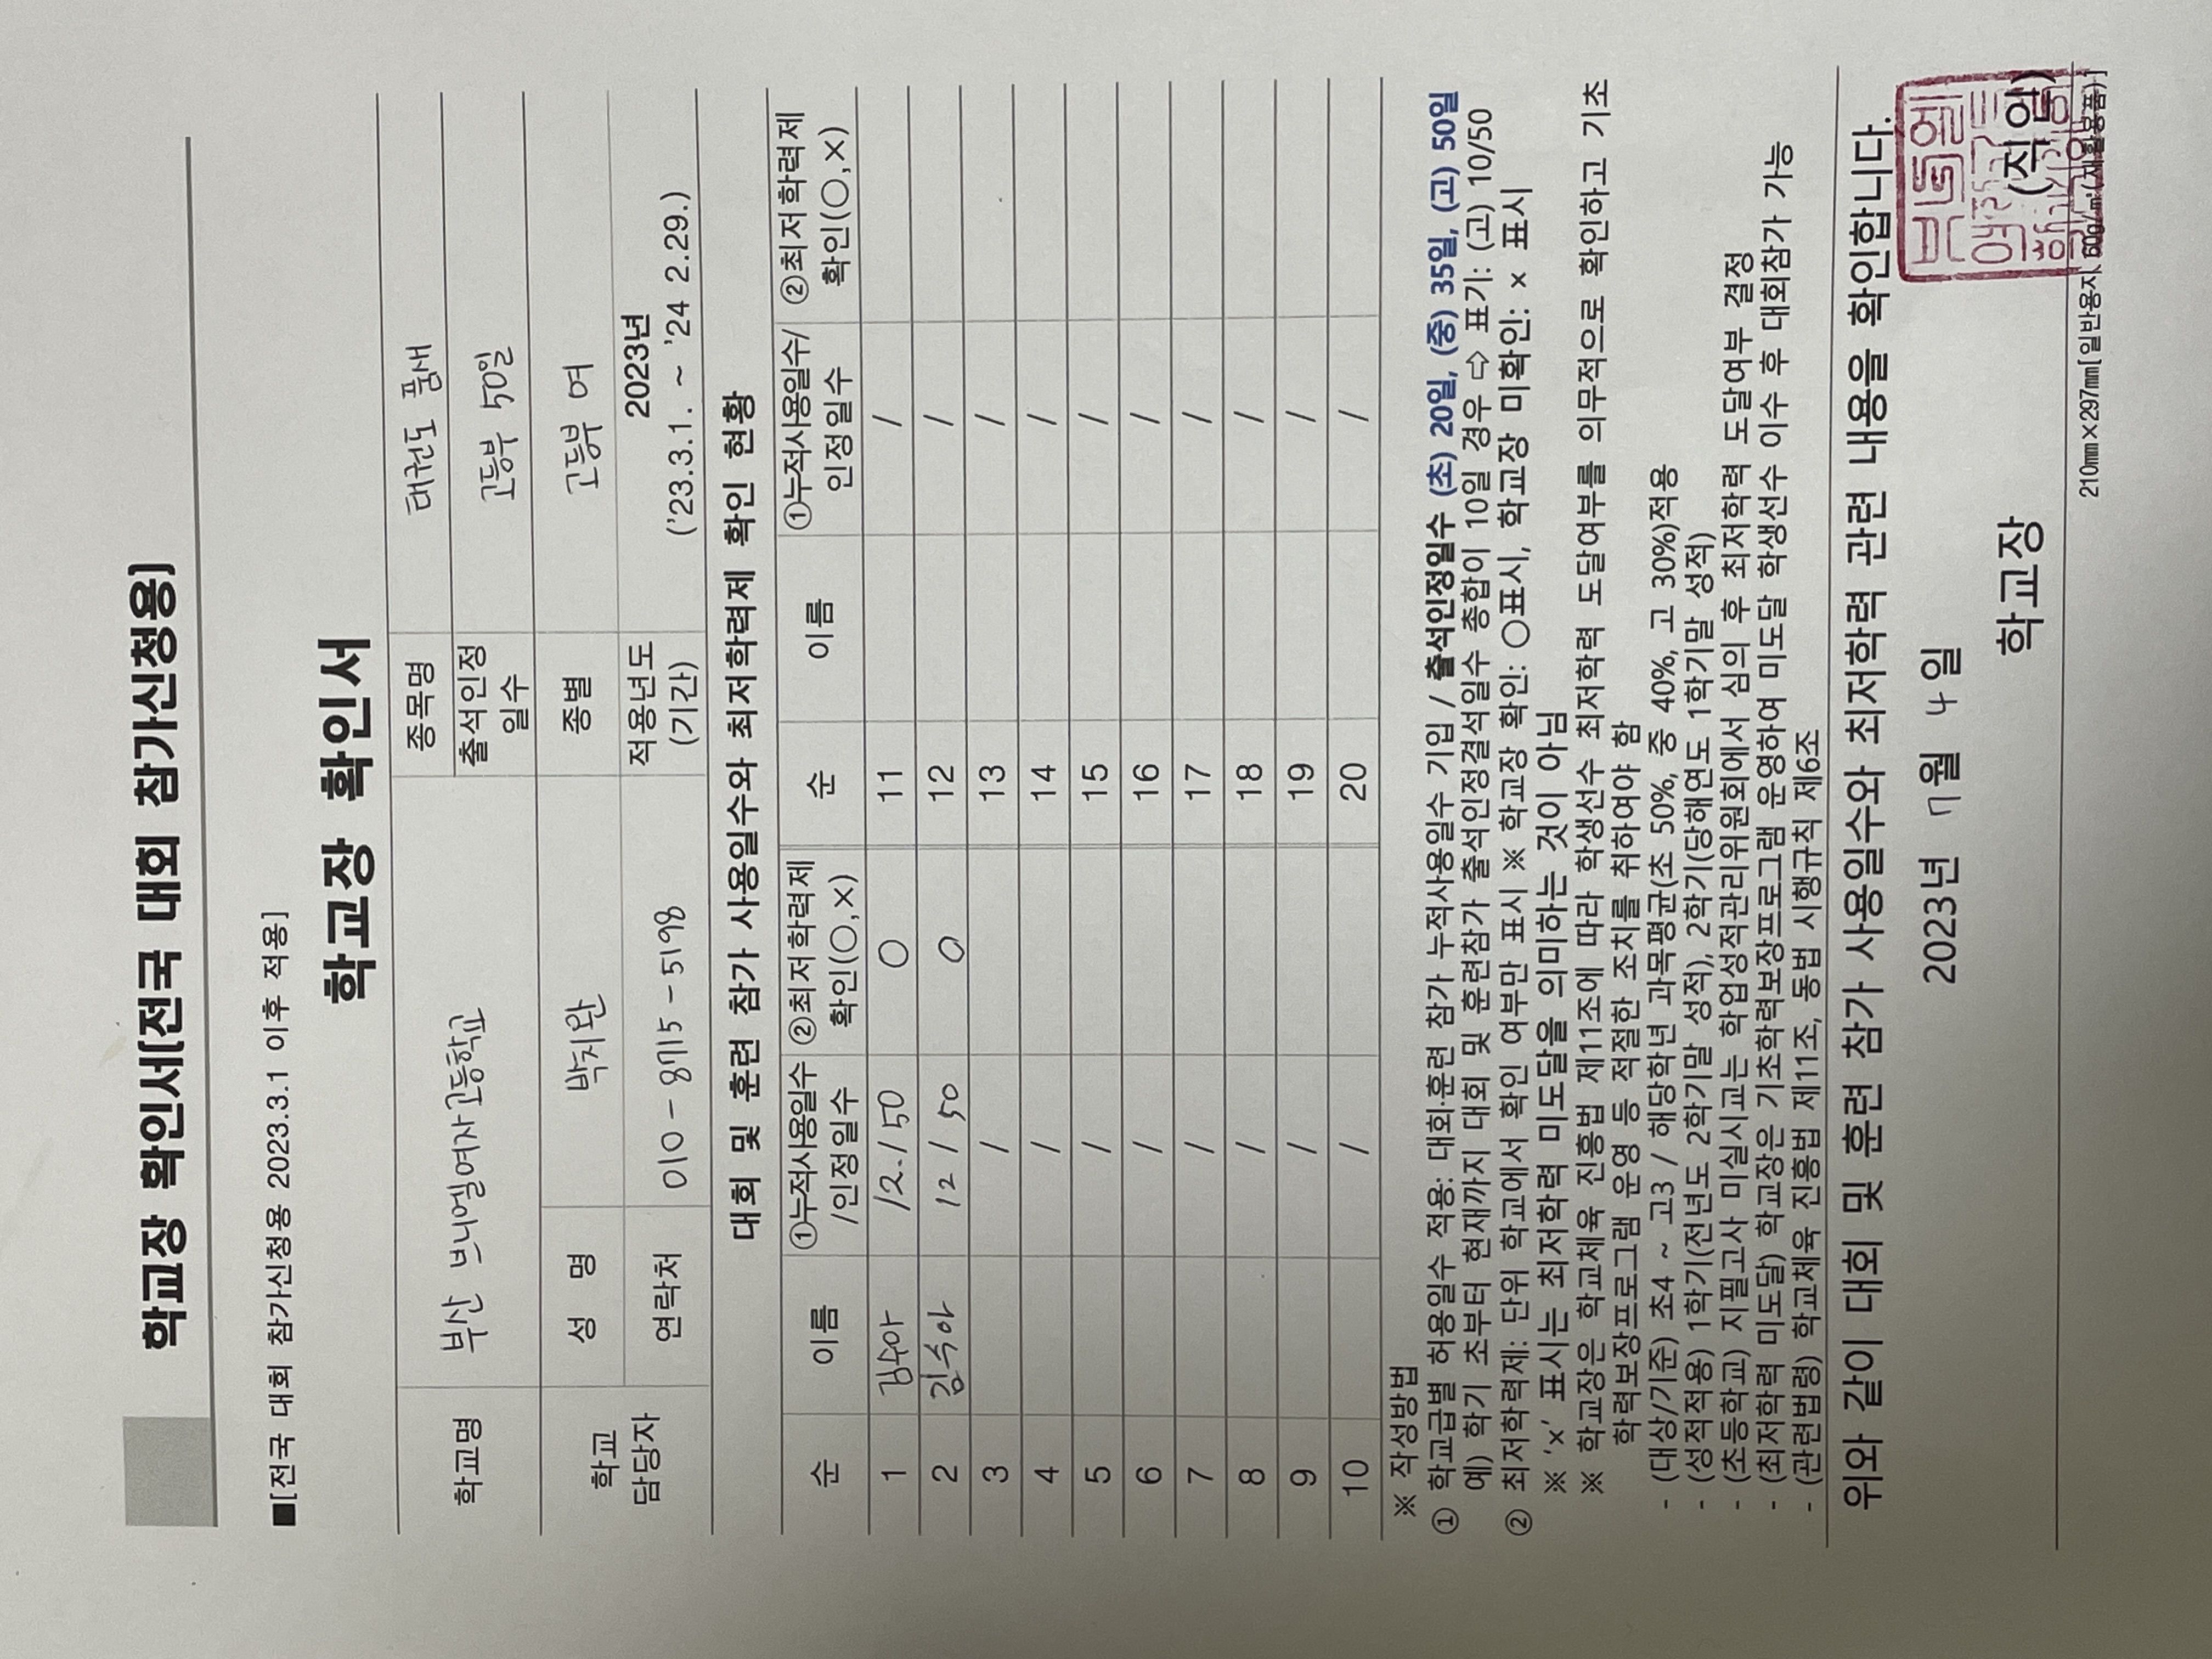 학교장 확인서[전국 대회 참가신청용]
■[전국 대회 참가신청용 2023.3.1 이후 적용]
학교장 확인서
학교명 부산 브니엘여자고등학교 종목명 태권도 품새
출석인정 일수 고등부 50일
학교 담당자 성 명 박치완 종별 고등부 여
연락처 010-8715-5198 적용년도 (기간) 2023년 ('23.3.1. ~ '24 2.29.)
대회 및 훈련 참가 사용일수와 최저학력제 확인 현황
순 이름 ①누적사용일수/인정일수 ②최저학력제 확인(○,×) 순 이름 ①누적사용일수/인정일수 ②최저학력제 확인(○,×)
1 김수아 12/50 ○ 11 /
2 김숙아 12/50 ○ 12 /
3 / 13 /
4 / 14 /
5 / 15 /
6 / 16 /
7 / 17 /
8 / 18 /
9 / 19 /
10 / 20 /
※ 작성방법
① 학교급별 허용일수 적용: 대회·훈련 참가 누적사용일수 기입 / 출석인정일수 (초) 20일, (중) 35일, (고) 50일
예) 학기 초부터 현재까지 대회 및 훈련참가 출석인정결석일수 총합이 10일 경우 ⇨ 표기: (고) 10/50
② 최저학력제: 단위 학교에서 확인 여부만 표시 ※ 학교장 확인: ○표시, 학교장 미확인: × 표시
※ '×' 표시는 최저학력 미도달을 의미하는 것이 아님
※ 학교장은 학교체육 진흥법 제11조에 따라 학생선수 최저학력 도달여부를 의무적으로 확인하고 기초
학력보장프로그램 운영 등 적절한 조치를 취하여야 함
- (대상/기준) 초4 ~ 고3 / 해당학년 과목평균(초 50%, 중 40%, 고 30%)적용
- (성적적용) 1학기(전년도 2학기말 성적), 2학기(당해연도 1학기말 성적)
- (초등학교) 지필고사 미실시교는 학업성적관리위원회에서 심의 후 최저학력 도달여부 결정
- (최저학력 미도달) 학교장은 기초학력보장프로그램 운영하여 미도달 학생선수 이수 후 대회참가 가능
- (관련법령) 학교체육 진흥법 제11조, 동법 시행규칙 제6조
위와 같이 대회 및 훈련 참가 사용일수와 최저학력 관련 내용을 확인합니다.
2023년 7월 4일
학교장 (직인)
210㎜×297㎜[일반용지 60g/㎡(재활용품)]